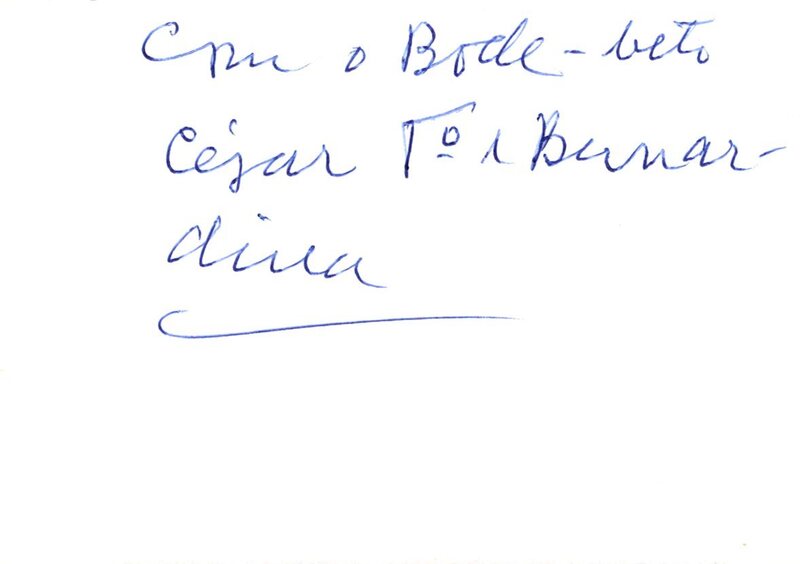 Com o Bode-beto
César Tº e Bernar-
dina